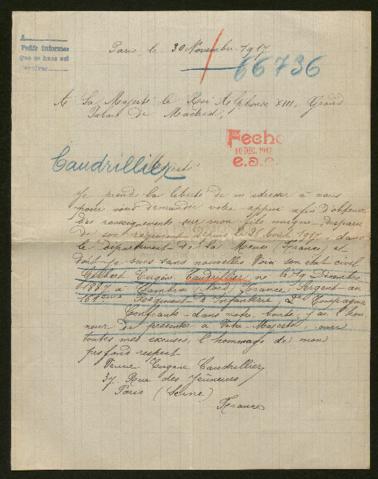 A
Pedir informes
Paris le 30 Novembre 1917
66736
A Sa Majesté le Roi Alphonse XIII, Grand
Palais de Madrid,
Fecha
10 DIC. 1917
e.a.c.
Caudrillier
Je prends la liberté de m'adresser à vous
pour vous demander votre appui afin d'obtenir
des renseignements sur mon fils unique, disparu
de son régiment depuis le
le département de la Meuse (France) et
dont je suis sans nouvelles. Voici son état civil
Eugène Caudrillier, né le 19 Décembre
1887 à Cambrai Nord France, Sergent au
Régiment d'Infanterie, 2e Compagnie
Confiante dans votre bonté, j'ai l'hon
neur de présenter à Votre Majesté, avec
toutes mes excuses, l'hommage de mon
profond respect.
Veuve Eugène Caudrillier,
37 Rue des Jeûneurs,
Paris (Seine)
France